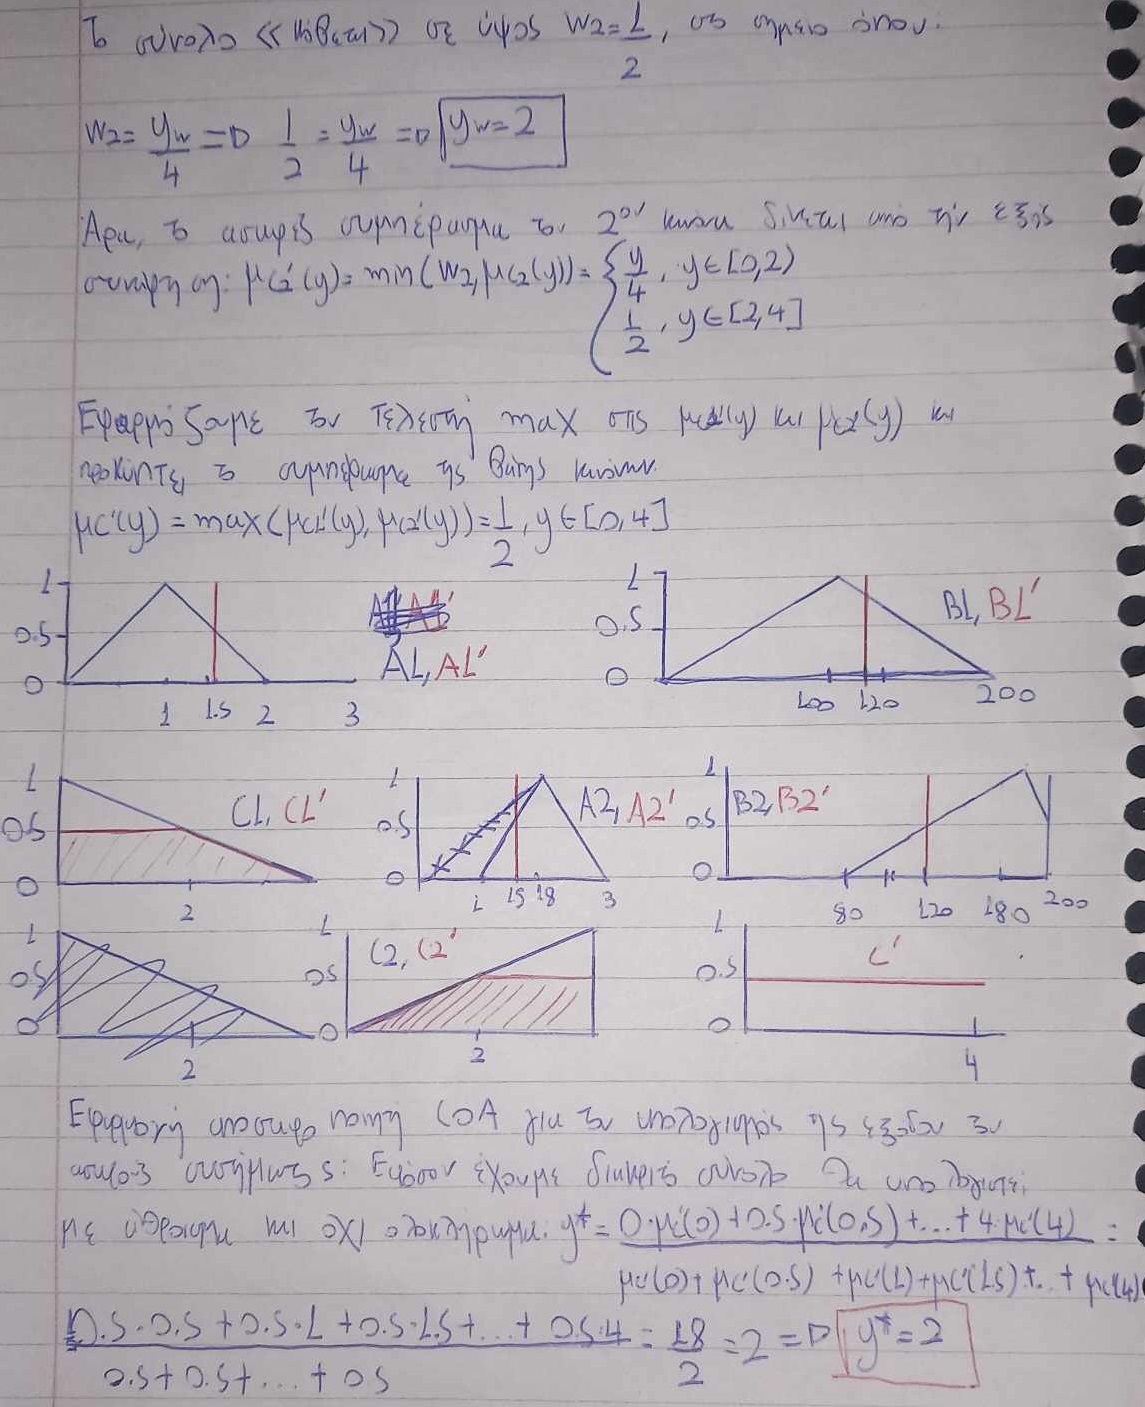 Το σύνολο <<κόβεται>> σε ύψος W2=1/2, στο σημείο όπου:
W2=yw/4 => 1/2=yw/4 => yw=2
Άρα, το ασαφές συμπέρασμα του 2ου κανόνα δίνεται από την εξής
συνάρτηση: μC2'(y)=min(W2,μC2(y))={y/4, y∈[0,2)
1/2, y∈[2,4]
Εφαρμόζουμε τον τελεστή max στις μC1'(y) και μC2'(y) και
προκύπτει το συμπέρασμα της βάσης κανόνων.
μC'(y)=max(μC1'(y),μC2'(y))=1/2, y∈[0,4]
1 0.5 0 1 1.5 2 3 A1,A1'
1 0.5 0 100 120 200 B1,B1'
1 0.5 0 2 C1,C1'
1 0.5 0 1 1.5 1.8 3 A2,A2'
1 0.5 0 80 120 180 200 B2,B2'
1 0.5 0 2
1 0.5 0 2 C2,C2'
1 0.5 0 4 C'
Εφαρμογή αποασαφοποίηση COA για τον υπολογισμός της εξόδου του
ασαφούς συστήματος: Εφόσον έχουμε διακριτό σύνολο θα υπολογιστεί
με άθροισμα και όχι ολοκλήρωμα: y*=0·μC'(0)+0.5·μC'(0.5)+...+4·μC'(4) =
μC'(0)+μC'(0.5)+μC'(1)+μC'(1.5)+..+μC'(4)
0.5·0.5+0.5·1+0.5·1.5+...+0.5·4 = 18/2=2 => y*=2
0.5+0.5+...+0.5